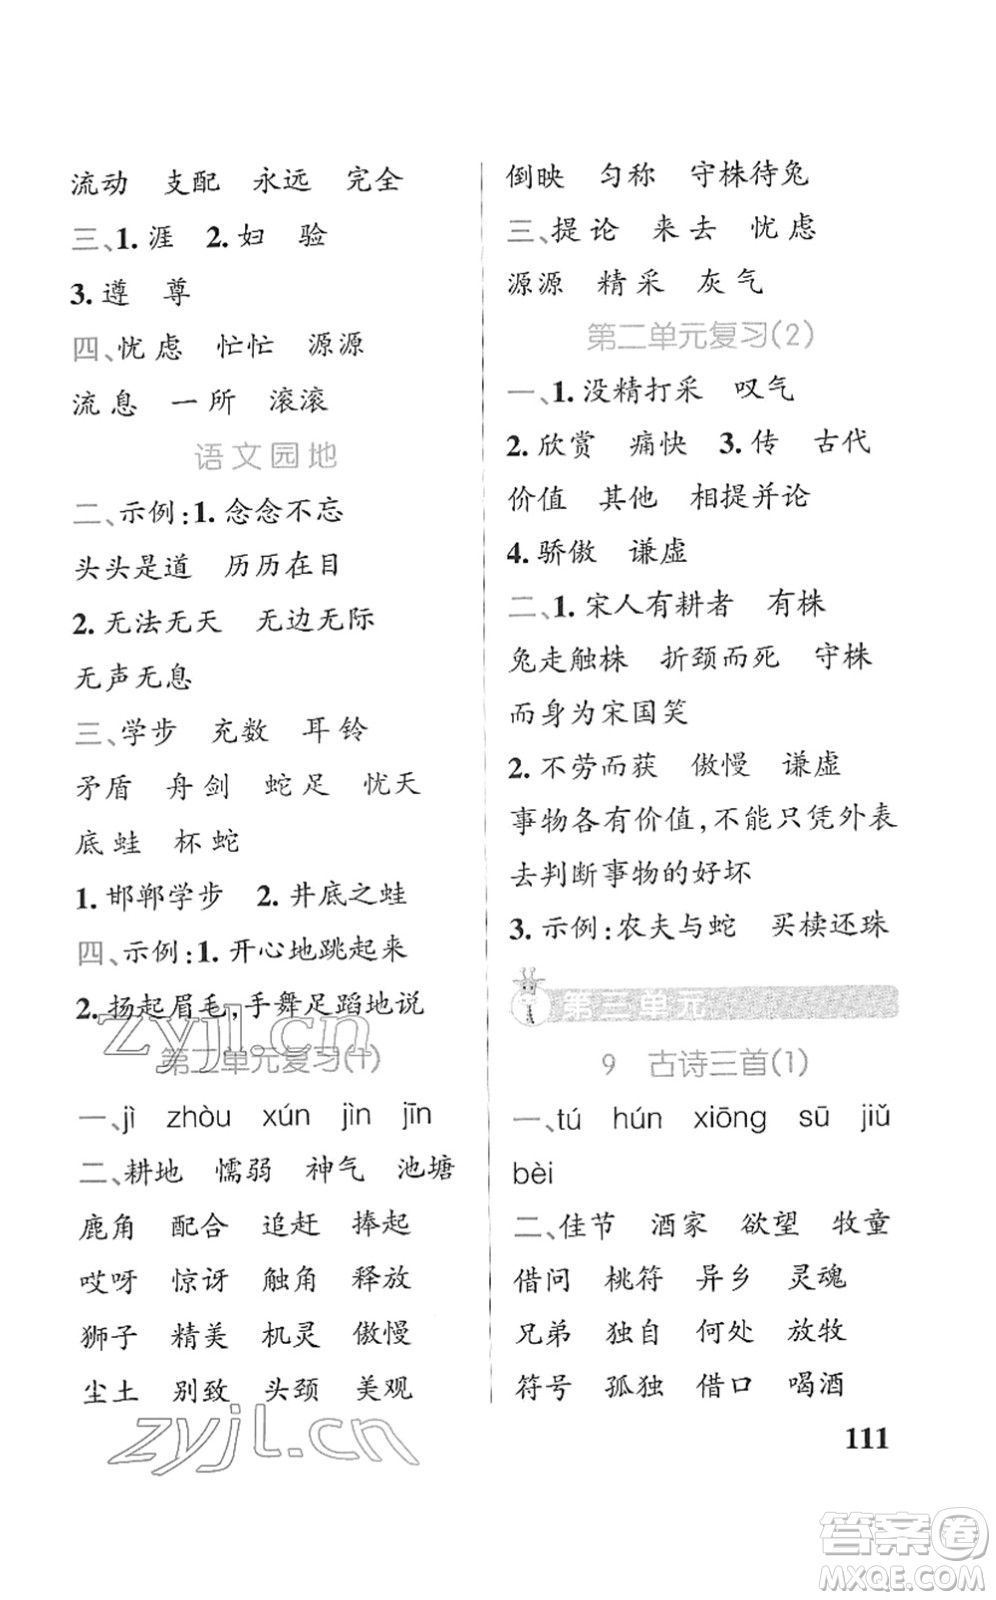 流动 支配 永远 完全
三、1. 涯 2. 妇 验
3. 遵 尊
四、忧虑 忙忙 源源
流息 一所 滚滚
语文园地
二、示例:1. 念念不忘
头头是道 历历在目
2. 无法无天 无边无际
无声无息
三、学步 充数 耳铃
矛盾 舟剑 蛇足 忧天
底蛙 杯蛇
1. 邯郸学步 2. 井底之蛙
四、示例:1. 开心地跳起来
2. 扬起眉毛,手舞足蹈地说
zyjl.cn
第二单元复习(1)
一、jì zhòu xún jìn jīn
二、耕地 懦弱 神气 池塘
鹿角 配合 追赶 捧起
哎呀 惊讶 触角 释放
狮子 精美 机灵 傲慢
尘土 别致 头颈 美观
zyjl.cn
倒映 匀称 守株待兔
三、提论 来去 忧虑
源源 精采 灰气
第二单元复习(2)
一、1. 没精打采 叹气
2. 欣赏 痛快 3. 传 古代
价值 其他 相提并论
4. 骄傲 谦虚
二、1. 宋人有耕者 有株
兔走触株 折颈而死 守株
而身为宋国笑
2. 不劳而获 傲慢 谦虚
事物各有价值,不能只凭外表
去判断事物的好坏
3. 示例:农夫与蛇 买椟还珠
第三单元
9 古诗三首(1)
一、tú hún xiōng sū jiǔ
bèi
二、佳节 酒家 欲望 牧童
借问 桃符 异乡 灵魂
兄弟 独自 何处 放牧
符号 孤独 借口 喝酒
111
答案卷
MXQE.COM